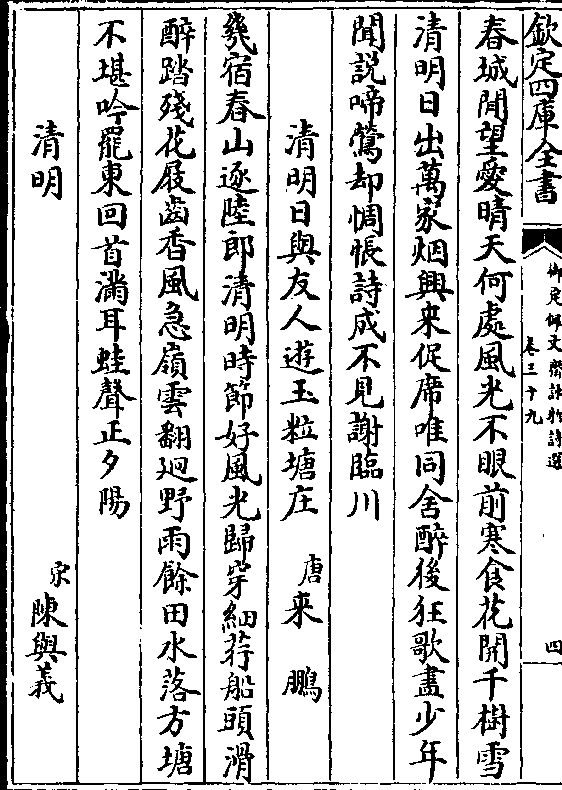 欽定四庫全書
御定佩文齋詠物詩選
卷三十九
四
春城閒望愛晴天何處風光不眼前寒食花開千樹雪
清明日出萬家烟興来促席唯同舍醉後狂歌盡少年
聞説啼鶯却惆悵詩成不見謝臨川
清明日與友人遊玉粒塘庄
唐来鵬
幾宿春山逐陸郎清明時節好風光歸穿細荇船頭滑
醉踏殘花屐齒香風急嶺雲翻迥野雨餘田水落方塘
不堪吟罷東回首滿耳蛙聲正夕陽
清明
宋陳與義